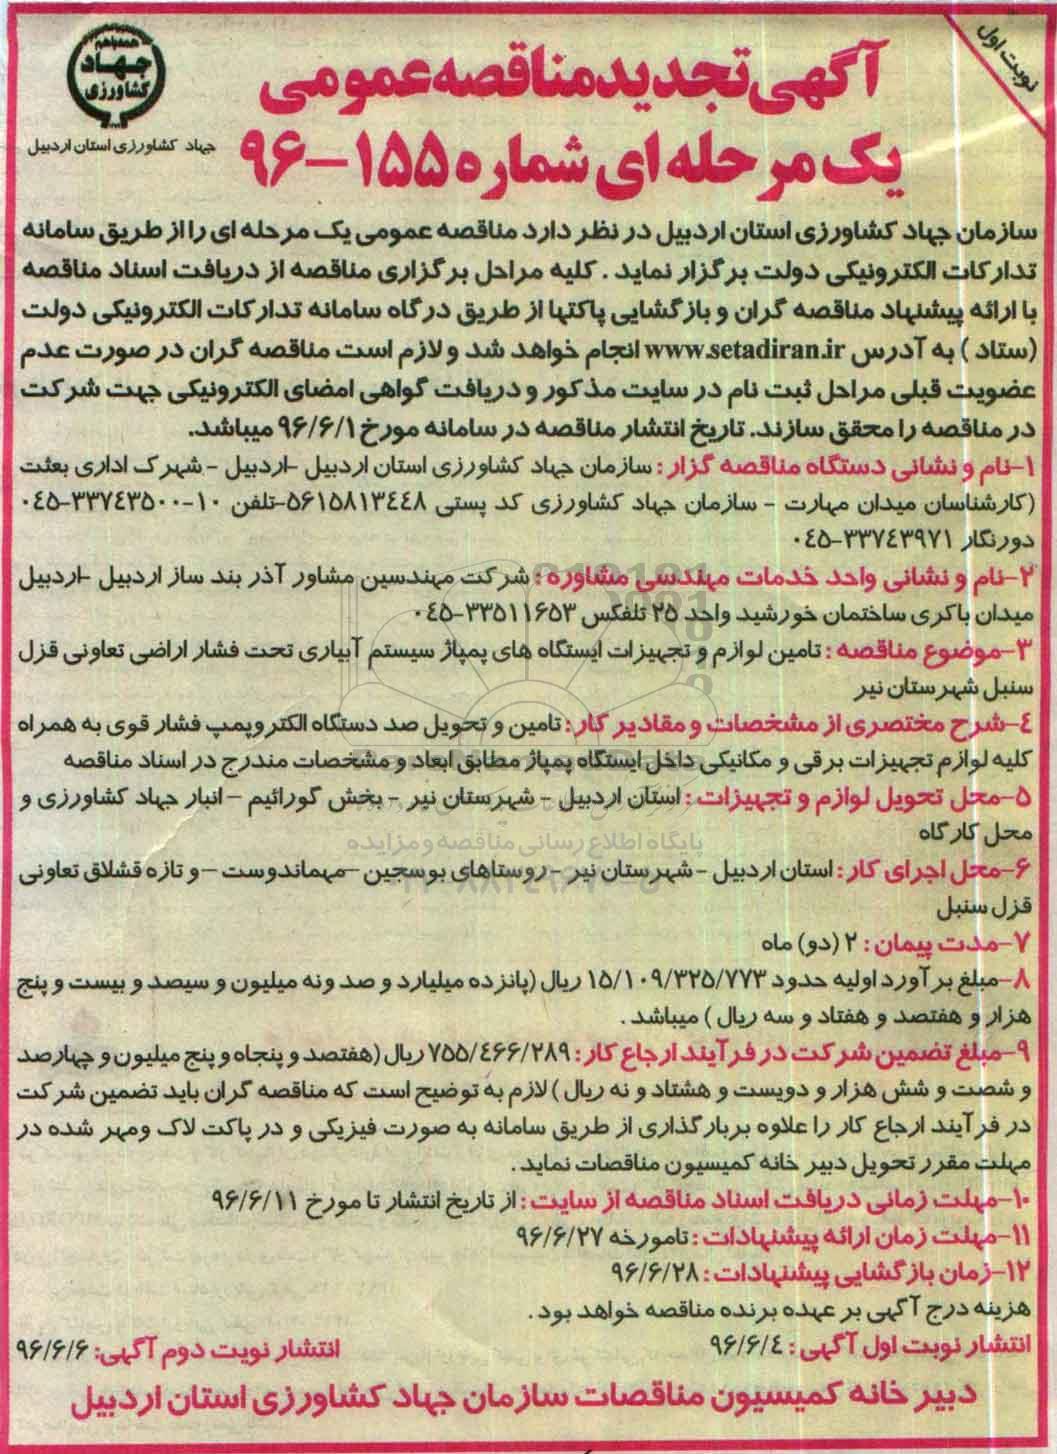 نوبت اول
همه با هم
جهاد
کشاورزی
جهاد کشاورزی استان اردبیل
آگهی تجدید مناقصه عمومی
یک مرحله ای شماره ۱۵۵-۹۶
سازمان جهاد کشاورزی استان اردبیل در نظر دارد مناقصه عمومی یک مرحله ای را از طریق سامانه
تدارکات الکترونیکی دولت برگزار نماید . کلیه مراحل برگزاری مناقصه از دریافت اسناد مناقصه
با ارائه پیشنهاد مناقصه گران و بازگشایی پاکتها از طریق درگاه سامانه تدارکات الکترونیکی دولت
(ستاد ) به آدرس www.setadiran.ir انجام خواهد شد و لازم است مناقصه گران در صورت عدم
عضویت قبلی مراحل ثبت نام در سایت مذکور و دریافت گواهی امضای الکترونیکی جهت شرکت
در مناقصه را محقق سازند. تاریخ انتشار مناقصه در سامانه مورخ ۹۶/۶/۱ میباشد.
۱-نام و نشانی دستگاه مناقصه گزار : سازمان جهاد کشاورزی استان اردبیل -اردبیل - شهرک اداری بعثت
(کارشناسان میدان مهارت - سازمان جهاد کشاورزی کد پستی ۵۶۱۵۸۱۳۴۴۸-تلفن ۱۰-۳۳۷۴۳۵۰۰-۰۴۵
دورنگار ۳۳۷۴۳۹۷۱-۰۴۵
۲-نام و نشانی واحد خدمات مهندسی مشاوره : شرکت مهندسین مشاور آذر بند ساز اردبیل -اردبیل
میدان باکری ساختمان خورشید واحد ۲۵ تلفکس ۳۳۵۱۱۶۵۳-۰۴۵
۳-موضوع مناقصه : تامین لوازم و تجهیزات ایستگاه های پمپاژ سیستم آبیاری تحت فشار اراضی تعاونی قزل
سنبل شهرستان نیر
۴-شرح مختصری از مشخصات و مقادیر کار : تامین و تحویل صد دستگاه الکتروپمپ فشار قوی به همراه
کلیه لوازم تجهیزات برقی و مکانیکی داخل ایستگاه پمپاژ مطابق ابعاد و مشخصات مندرج در اسناد مناقصه
۵-محل تحویل لوازم و تجهیزات : استان اردبیل - شهرستان نیر - بخش گورائیم - انبار جهاد کشاورزی و
محل کارگاه
پایگاه اطلاع رسانی مناقصه و مزایده
۶-محل اجرای کار : استان اردبیل - شهرستان نیر - روستاهای بوسجین -مهماندوست - و تازه قشلاق تعاونی
قزل سنبل
۷-مدت پیمان : ۲ (دو) ماه
۸-مبلغ برآورد اولیه حدود ۱۵/۱۰۹/۳۲۵/۷۷۳ ریال (پانزده میلیارد و صد و نه میلیون و سیصد و بیست و پنج
هزار و هفتصد و هفتاد و سه ریال ) میباشد .
۹-مبلغ تضمین شرکت در فرآیند ارجاع کار : ۷۵۵/۴۶۶/۲۸۹ ریال (هفتصد و پنجاه و پنج میلیون و چهارصد
و شصت و شش هزار و دویست و هشتاد و نه ریال ) لازم به توضیح است که مناقصه گران باید تضمین شرکت
در فرآیند ارجاع کار را علاوه بربارگذاری از طریق سامانه به صورت فیزیکی و در پاکت لاک ومهر شده در
مهلت مقرر تحویل دبیر خانه کمیسیون مناقصات نماید .
۱۰-مهلت زمانی دریافت اسناد مناقصه از سایت : از تاریخ انتشار تا مورخ ۹۶/۶/۱۱
۱۱-مهلت زمان ارائه پیشنهادات : تامورخه ۹۶/۶/۲۷
۱۲-زمان بازگشایی پیشنهادات : ۹۶/۶/۲۸
هزینه درج آگهی بر عهده برنده مناقصه خواهد بود .
انتشار نوبت اول آگهی : ۹۶/۶/۴
انتشار نوبت دوم آگهی: ۹۶/۶/۶
دبیر خانه کمیسیون مناقصات سازمان جهاد کشاورزی استان اردبیل